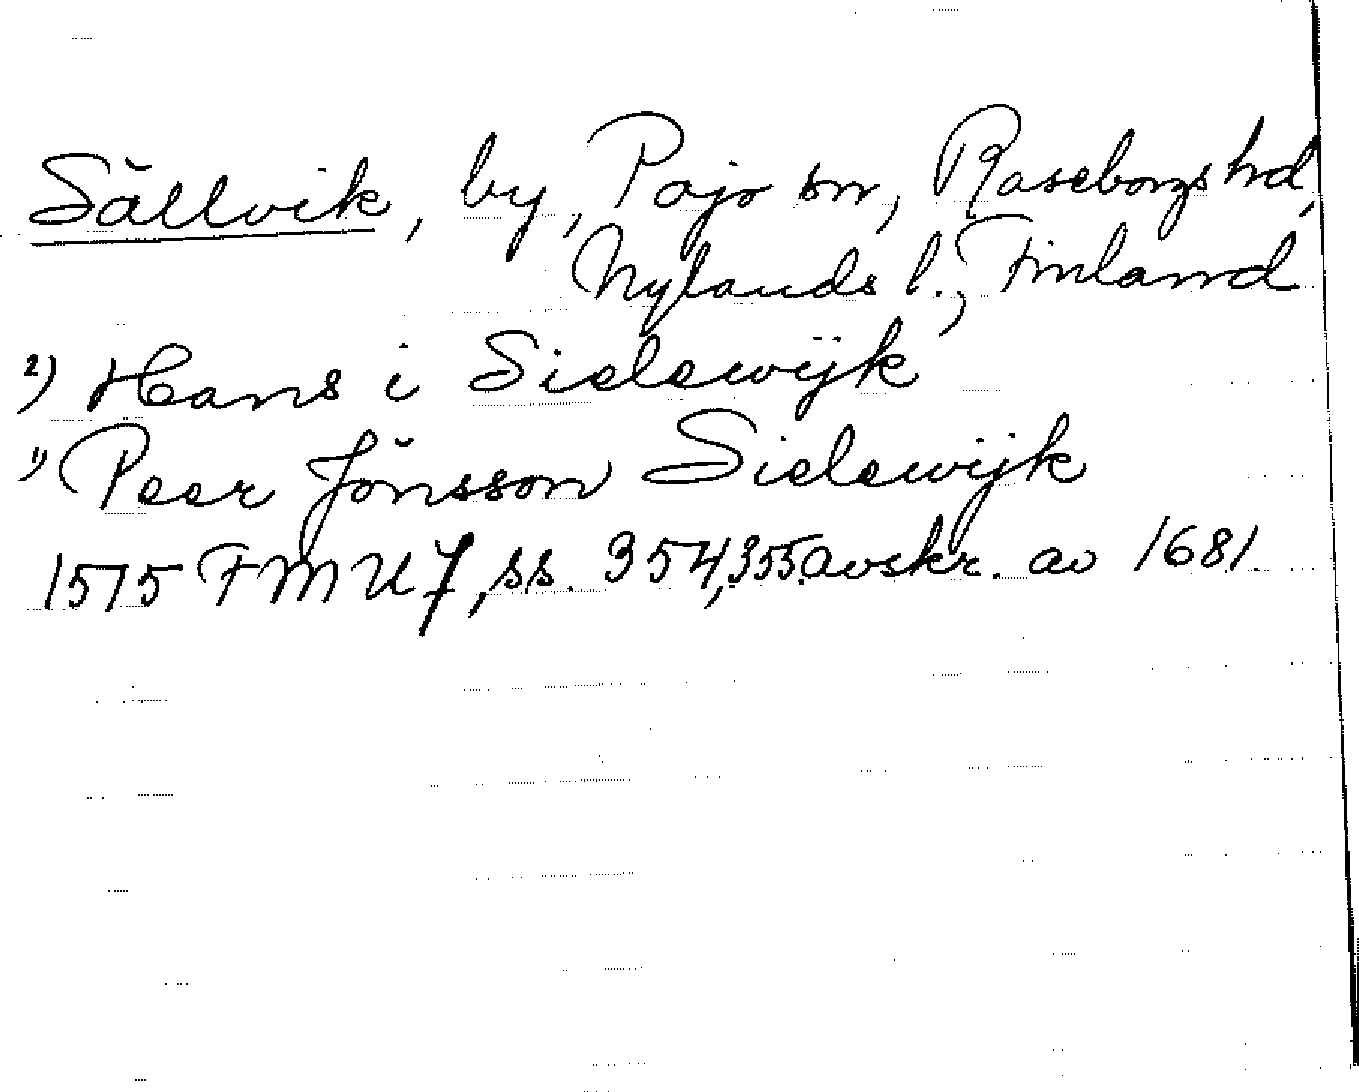 Sällvik, by, Pojo sn, Raseborgs hd,
Nylands l., Finland
2) Hans i Sielewijk
1) Peer Jönsson Sielewijk
1575 FMU 7, ss. 354,355. avskr. av 1681.